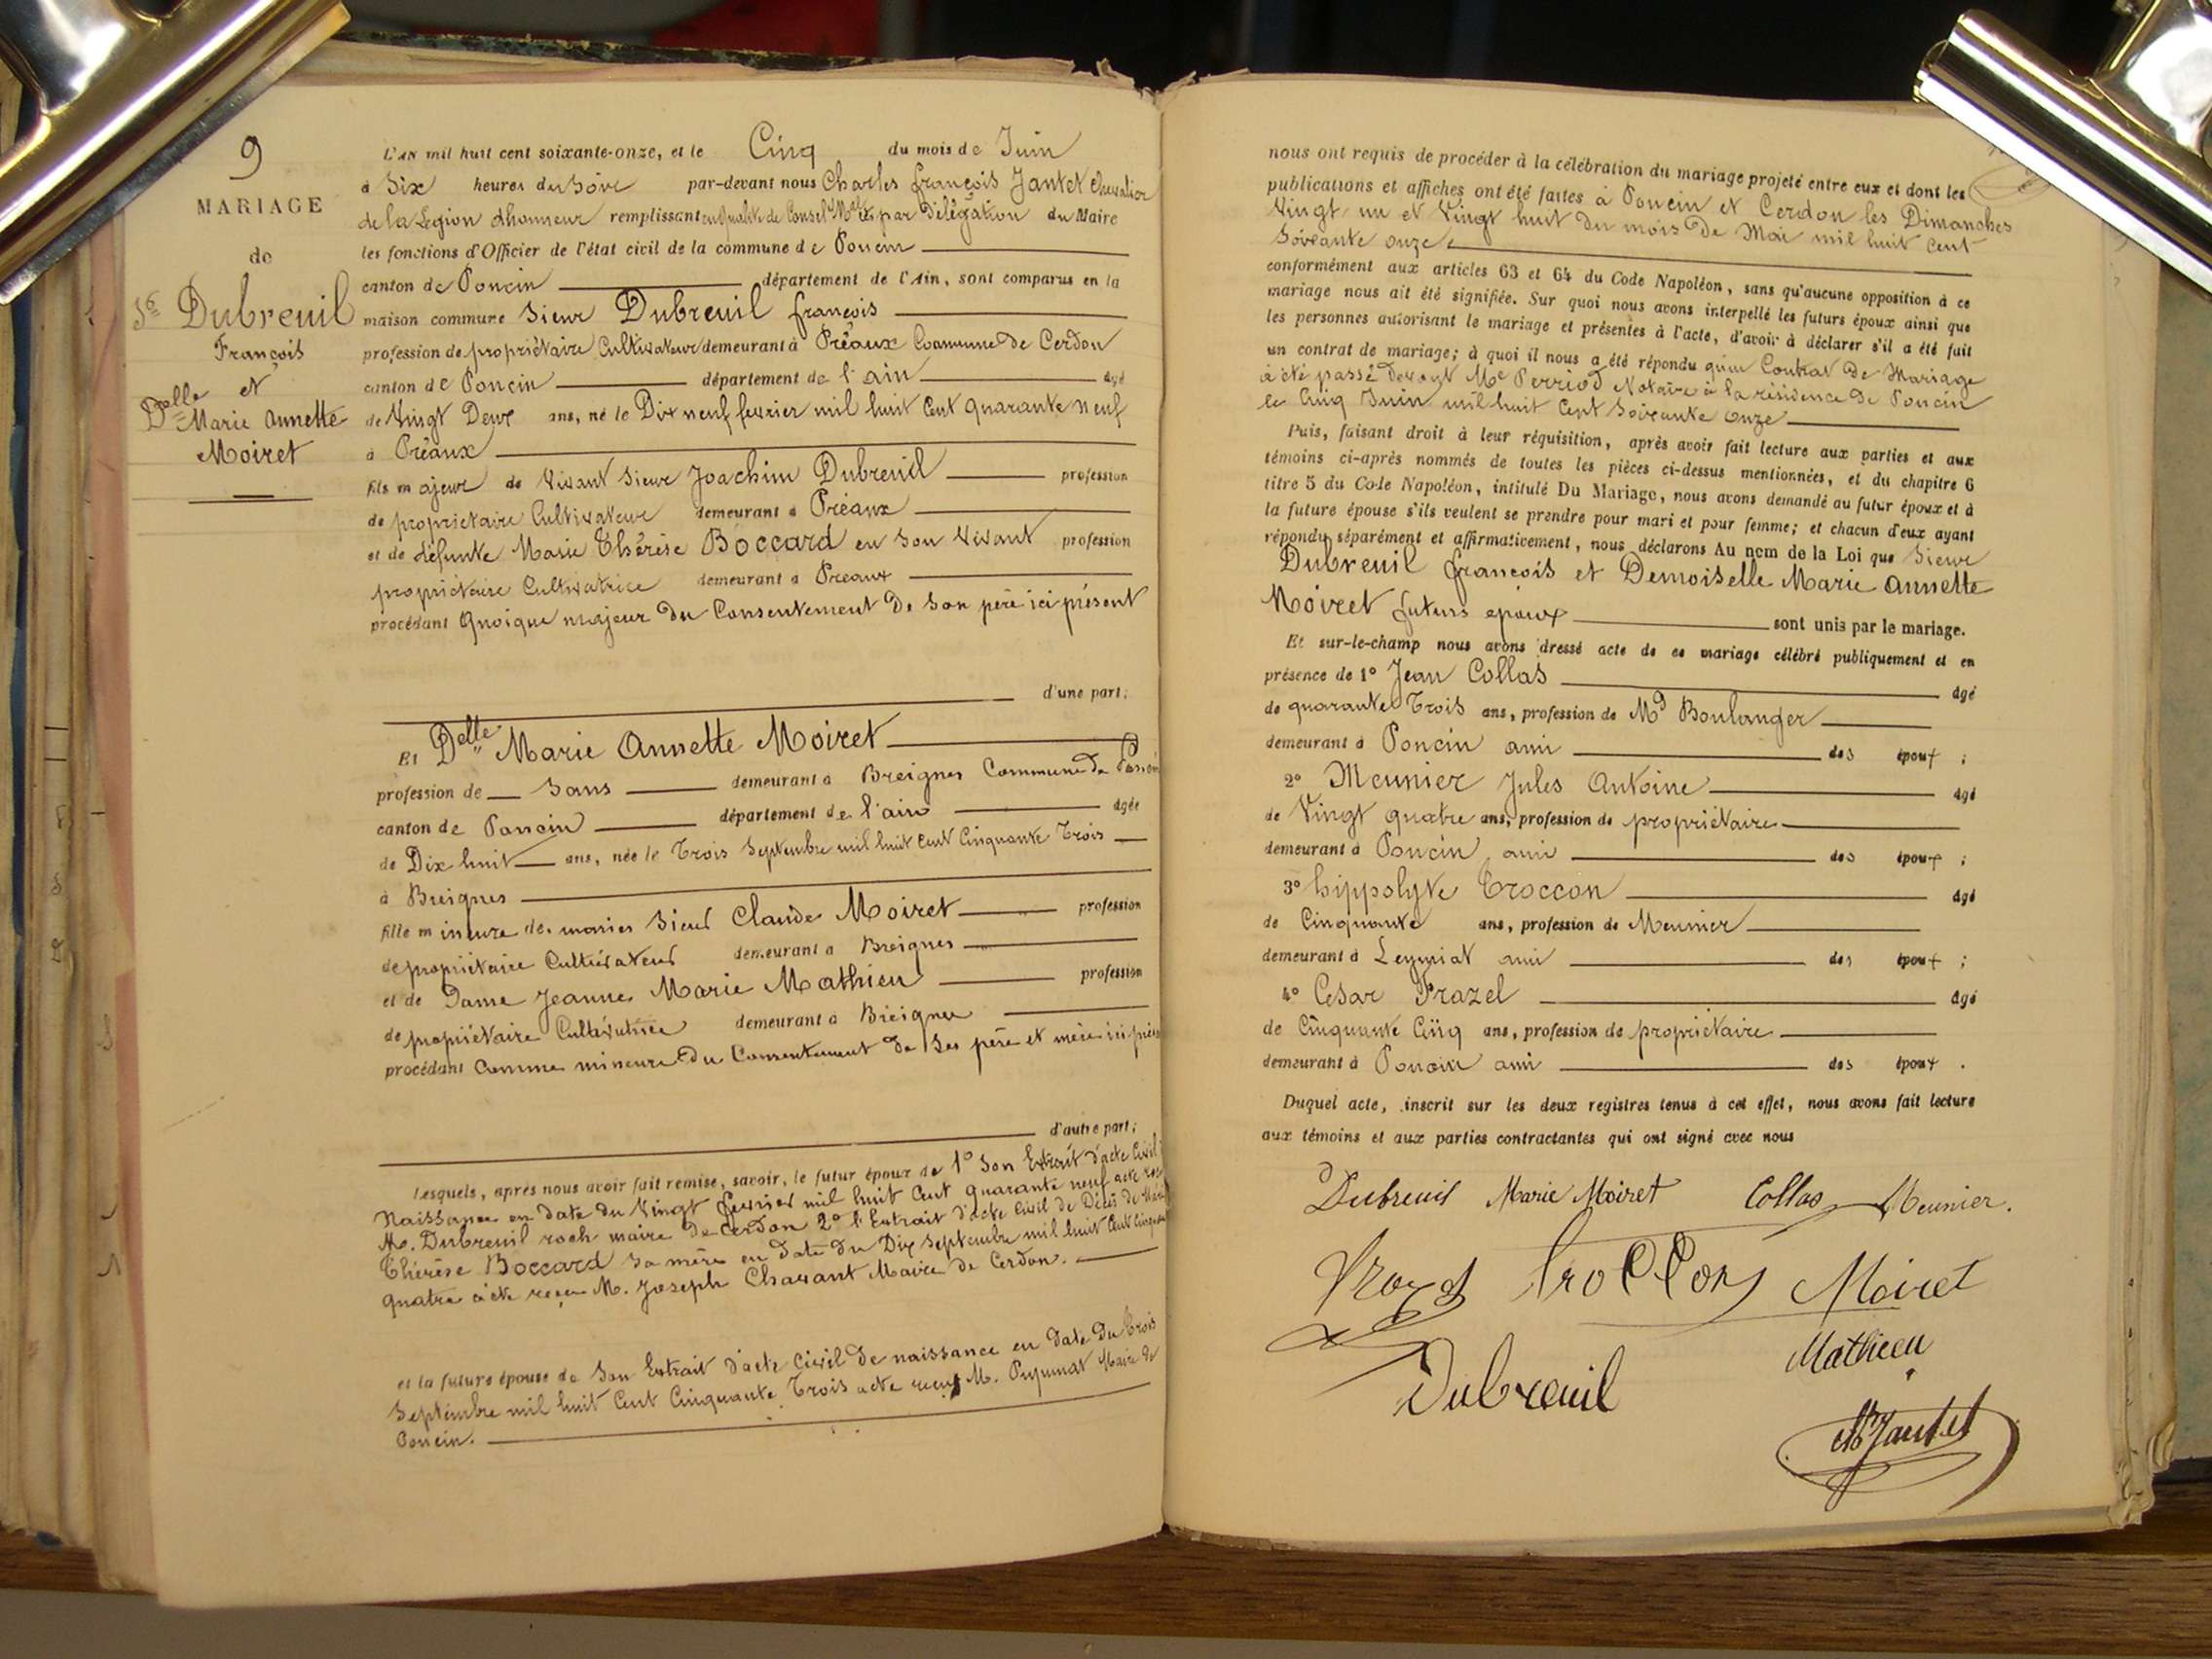 9
MARIAGE
de
Sr Dubreuil
François
et
Delle Marie Annette
Moiret
L'AN mil huit cent soixante-onze, et le Cinq du mois de Juin
à Six heures du Soir par-devant nous Charles françois Jantet Chevalier
de la Légion dhonneur remplissant en qualité de Conseil Mal et par Délégation du Maire
les fonctions d'Officier de l'état civil de la commune de Poncin
canton de Poncin département de l'Ain, sont comparus en la
maison commune Sieur Dubreuil françois
profession de propriétaire Cultivateur demeurant à Préaux Commune de Cerdon
canton de Poncin département de l'ain âgé
de Vingt Deux ans, né le Dix neuf fevrier mil huit Cent quarante neuf
à Préaux
fils majeur de Vivant Sieur Joachim Dubreuil profession
de propriétaire Cultivateur demeurant à Préaux
et de défunte Marie Thérèse Boccard en Son Vivant profession
propriétaire Cultivatrice demeurant à Preaux
procédant Quoique majeur du Consentement De Son père ici présent
d'une part;
Et Delle Marie Annette Moiret
profession de Sans demeurant à Breignes Commune de Poncin
canton de Poncin département de l'ain âgée
de Dix huit ans, née le Trois Septembre mil huit Cent Cinquante Trois
à Breignes
fille mineure des maries Sieur Claude Moiret profession
de propriétaire Cultivateur demeurant à Breignes
et de Dame Jeanne Marie Mathieu profession
de propriétaire Cultivatrice demeurant à Breignes
procédant Comme mineure Du Consentement de Ses père et mère ici
d'autre part;
Lesquels, après nous avoir fait remise, savoir, le futur époux de 1° Son Extrait d'acte Civil
Naissance en date du Vingt fevrier mil huit Cent quarante neuf acte
M. Dubreuil roch maire de Cerdon 2° l'Extrait d'acte Civil de Décès de
Thérèse Boccard Sa mère en date du Dix Septembre mil huit Cent
quatre acte reçu M. Joseph Charant Maire de Cerdon.
et la future épouse de Son Extrait d'acte Civil De naissance en Date Du Trois
Septembre mil huit Cent Cinquante Trois acte reçu M. Maire de
Poncin.
nous ont requis de procéder à la célébration du mariage projeté entre eux et dont les
publications et affiches ont été faites à Poncin et Cerdon les Dimanches
Vingt un et Vingt huit du mois De Mai mil huit Cent
Soixante onze
conformément aux articles 63 et 64 du Code Napoléon, sans qu'aucune opposition à ce
mariage nous ait été signifiée. Sur quoi nous avons interpellé les futurs époux ainsi que
les personnes autorisant le mariage et présentes à l'acte, d'avoir à déclarer s'il a été fait
un contrat de mariage; à quoi il nous a été répondu qu'un Contrat De Mariage
a été passé devant Me Perriod Notaire à la résidence De Poncin
le Cinq Juin mil huit Cent Soixante onze
Puis, faisant droit à leur réquisition, après avoir fait lecture aux parties et aux
témoins ci-après nommés de toutes les pièces ci-dessus mentionnées, et du chapitre 6
titre 5 du Code Napoléon, intitulé Du Mariage, nous avons demandé au futur époux et à
la future épouse s'ils veulent se prendre pour mari et pour femme; et chacun d'eux ayant
répondu séparément et affirmativement, nous déclarons Au nom de la Loi que Sieur
Dubreuil françois et Demoiselle Marie Annette
Moiret futurs époux sont unis par le mariage.
Et sur-le-champ nous avons dressé acte de ce mariage célébré publiquement et en
présence de 1° Jean Collas âgé
de quarante Trois ans, profession de Md Boulanger
demeurant à Poncin ami des époux ;
2° Meunier Jules Antoine âgé
de Vingt quatre ans, profession de propriétaire
demeurant à Poncin ami des époux ;
3° hippolyte Troccon âgé
de Cinquante ans, profession de Meunier
demeurant à Leymiat ami des époux ;
4° Cesar Prazel âgé
de Cinquante Cinq ans, profession de propriétaire
demeurant à Poncin ami des époux .
Duquel acte, inscrit sur les deux registres tenus à cet effet, nous avons fait lecture
aux témoins et aux parties contractantes qui ont signé avec nous
Dubreuil Marie Moiret Collas Meunier.
Prazel Troccon Moiret
Mathieu
Dubreuil
Jantet